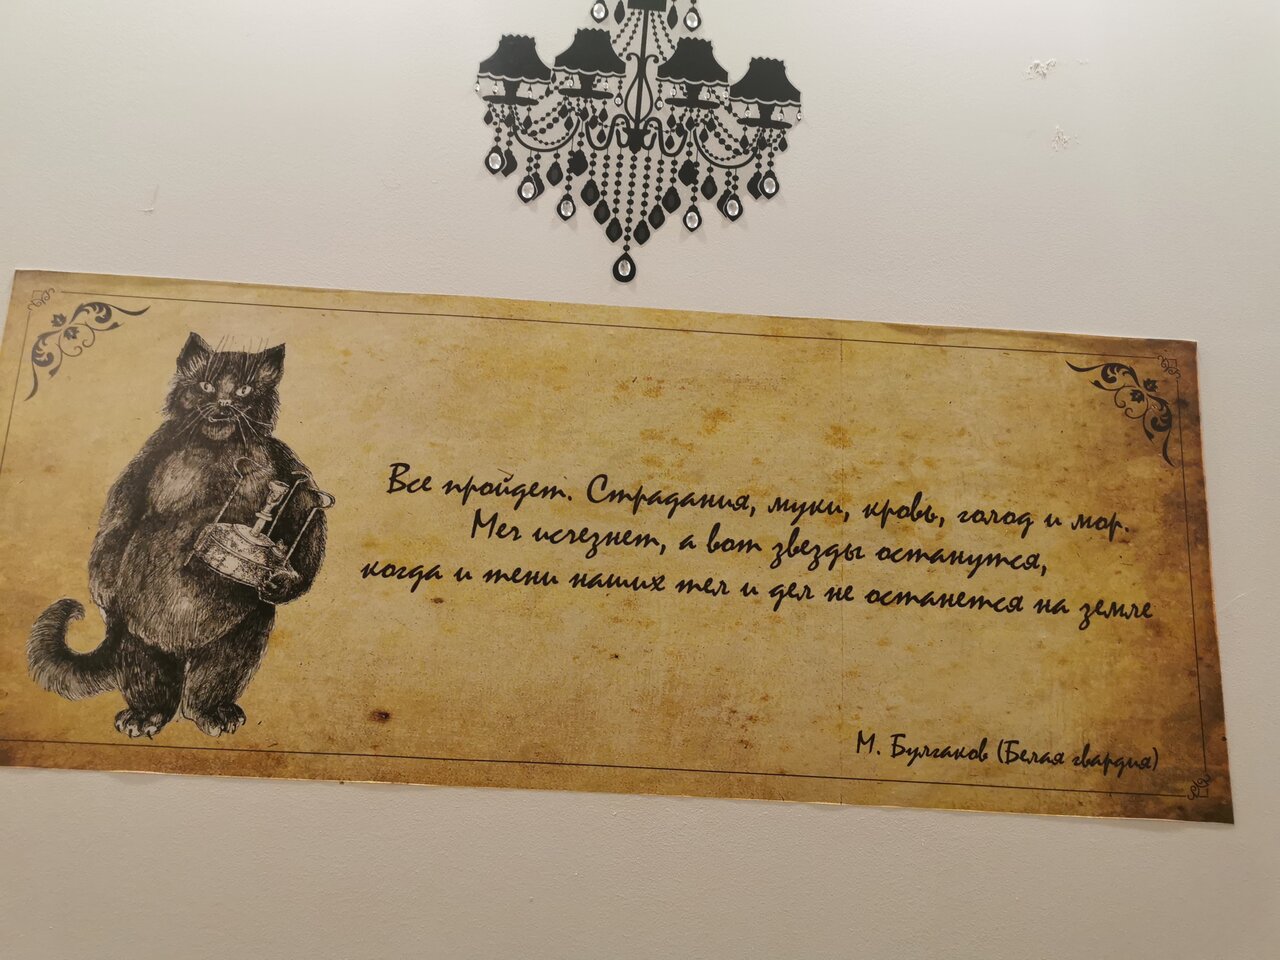 Все пройдет. Страдания, муки, кровь, голод и мор.
Меч исчезнет, а вот звезды останутся,
когда и тени наших тел и дел не останется на земле
М. Булгаков (Белая гвардия)